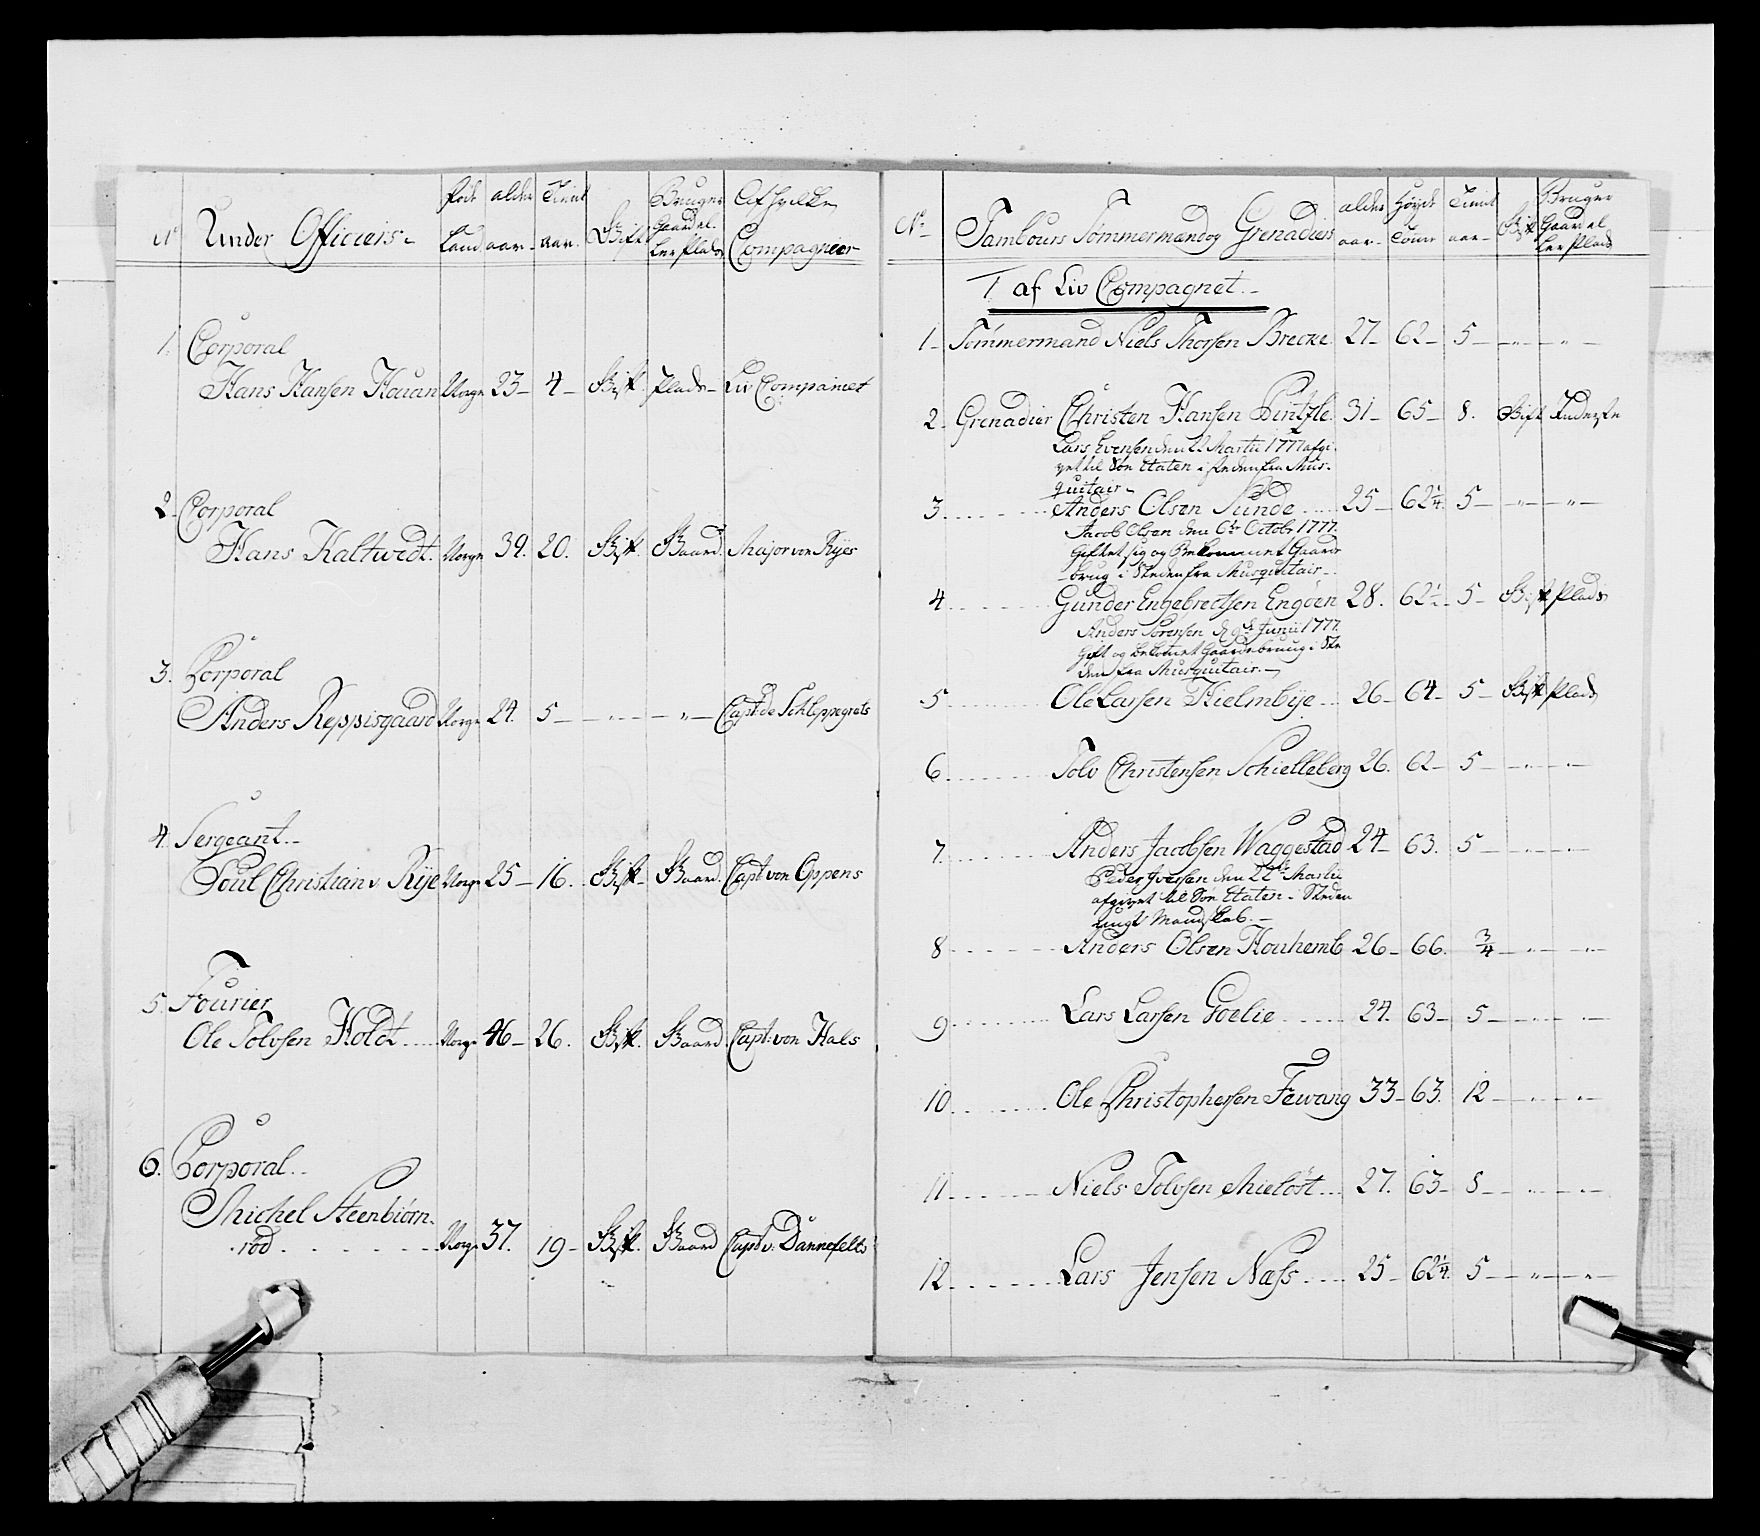 No Under Officiers. føde Land alder aar. Tient aar. Gift Bruger Gaard eller Plads Af hvilke Compagnier
1. Corporal
Hans Hansen Houan Norge 23 4 Gift Plads Liv Compagniet
2. Corporal
Hans Kaltvedt. Norge 39. 20. Gift. Gaard Major von Ryes
3. Corporal
Anders Reppisgaard Norge 24. 5 Capt de Schleppegrels
4. Sergeant.
Poul Christian v Rÿe Norge 25 16. Gift Gaard. Capt von Oppens
5. Fourier
Ole Tolvsen Holdt Norge 46 26. Gift. Gaard Capt: von Hals
6. Corporal.
Michel Steenbiørn-
rød Norge 37. 19 Gift. Gaard Capt v. Dannefelts
No Tambours Tømmermænd og Grenadiers alder aar Høyde Tomr Tient aar Gift Bruger Gaard eller Plads
af Liv Compagnet.
1 Tømmermand Niels Thorsen Brecke 27 62 5 " "
2 Grenadier Christen Hansen 31 65 8. Gift Inderste
Lars Evensen den 22 Martii 1777 afgi-
vet til Søe Etaten i steden fra Mus-
quitair
3 Anders Olsen Sunde 25 62¼ 5 " "
Jacob Olsen den 6te Octobr 1777.
Giftet sig og Bekommet Gaard
brug i Steden fra Musquitair
4 Gunder Engebrectsen Engøen 28. 62½ 5 Gift Plads
Anders Sørensen d 9de Junii 1777.
Gift og bekomet Gaardebruug i Ste
den fra Musquitair.
5 Ole Larsen Hielmbÿe 26 64 5 Gift Plads
6 Tolv Christensen Schielleberg 26. 62 5 " "
7. Anders Jacobsen Waggestad 24 63. 5 " "
Peder Iversen den 22de Martii
afgivet til Søe Etaten i Steden
ungt Mandskab.
8 Anders Olsen Houhemb 26 66. ¾ " "
9 Lars Larsen Goelie 24. 63 5 " "
10 Ole Christophersen Fewang 33 63. 12 " "
11 Niels Tolvsen Mieløst 27. 63 8 " "
12 Lars Jensen Næss 25 62¼ 5 " "